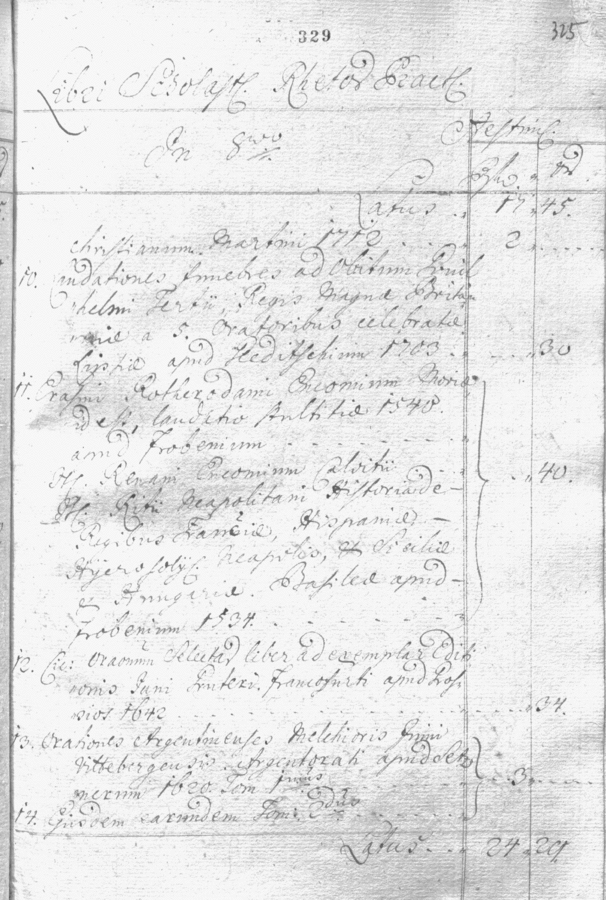 329
325
Libri Scholast. Rhetor Pract.
In 8vo
Aestim.
Rh. d
Latus .. 17. 45.
christianum Martini 1712 . . . 2 . . . .
10. Laudationes funebres ad Obitum Guil
helmi Tertii, Regis Magnæ Britan
niæ a 5. Oratoribus celebratæ
Lipsiæ apud . . . 30
11. Erasmi Rotherodami Encomium Moriæ
id est, laudatio stultitiæ 1540.
apud Frobenium - - - - -
It. Encomium Calvitii . . 40.
It. Ritii Neapolitani Historia de –
Regibus Franciæ, Hispaniæ, –
Hyerosolys. Neapolis, et Siciliæ
et Hungariæ. Basileæ apud –
Frobenium 1534. - - -
12. Cic. Selectar liber ad exemplar Editi
onis Jani Gruteri. Francofurti apud
1642 . . . . . 34.
13. Orationes Argentinenses Melchioris Junii
Vittebergensis. Argentorati apud
1620. Tom 1mus . . 3 . . . .
14. Ejusdem earundem Tom. 2dus
Latus . . . 24. 29